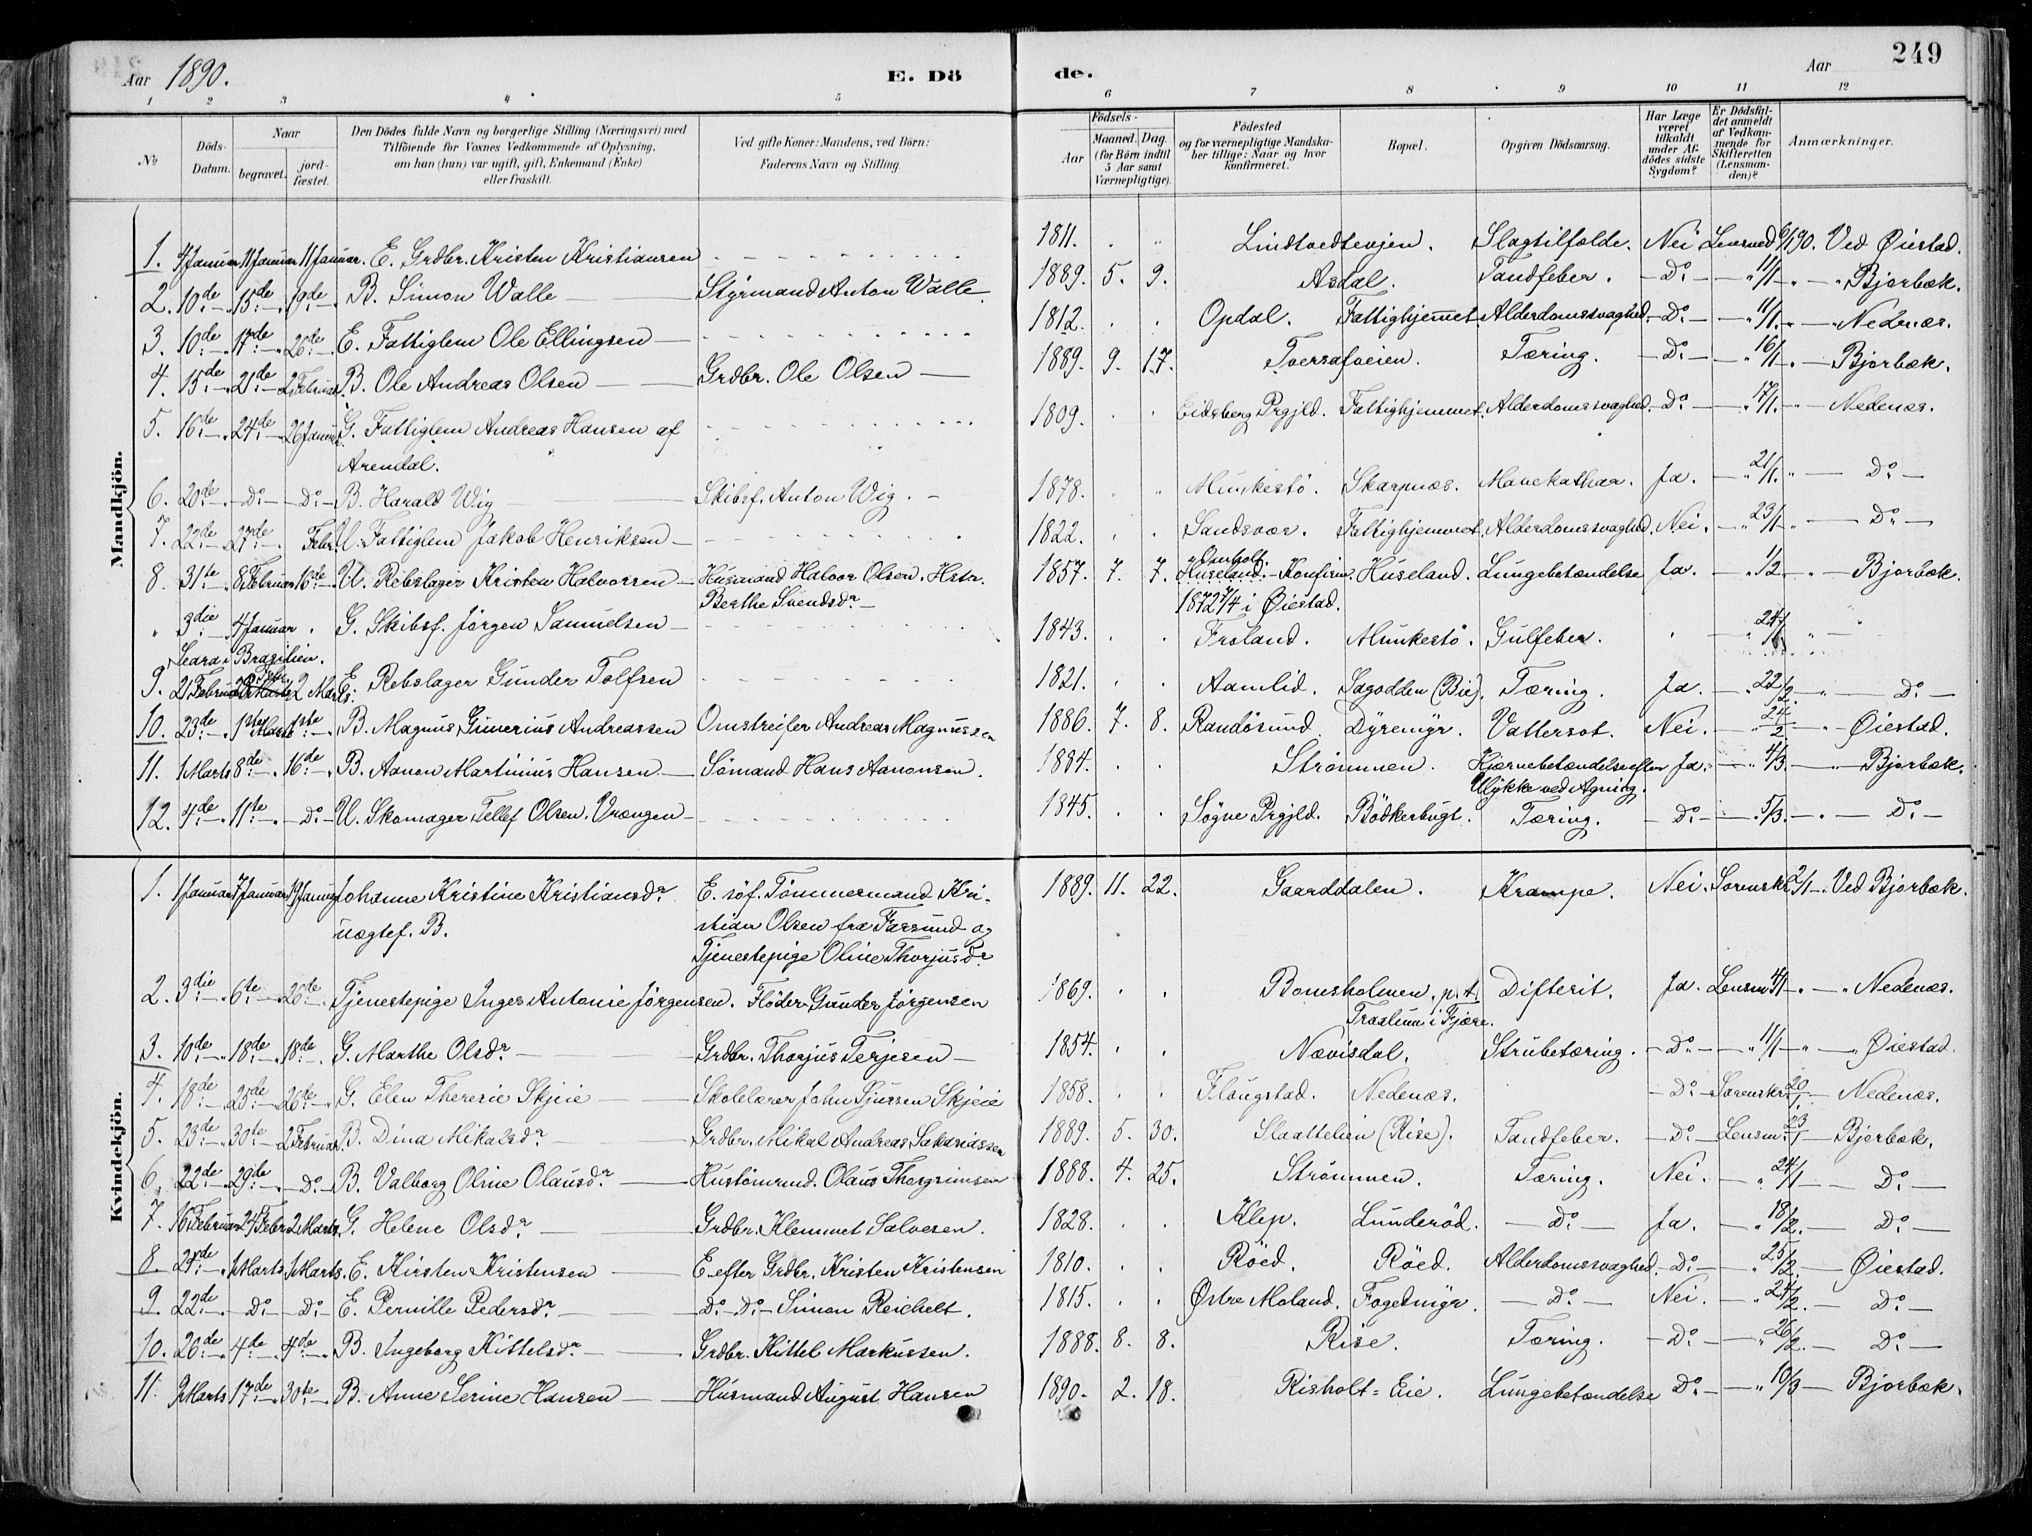 249
Aar 1890.
E. Dö
de.
Aar
1 2 3 4 5 6 7 8 9 10 11 12
No
Döds-Datum.
Naar
begravet.
jord-fæstet.
Den Dödes fulde Navn og borgerlige Stilling (Næringsvei) med
Tilföiende for Voxnes Vedkommende af Oplysning,
om han (hun) var ugift, gift, Enkemand (Enke)
eller fraskilt.
Ved gifte Koner: Mandens, ved Börn:
Faderens Navn og Stilling.
Födsels-
Aar
Maaned. Dag.
(for Börn indtil
5 Aar samt
Værnepligtige).
Födested
og for værnepligtige Mandska-
ber tillige: Naar og hvor
konfirmeret.
Bopæl.
Opgiven Dödsaarsag.
Har Læge
været
tilkaldt
under Af-
dödes sidste
Sygdom?
Er Dödsfal-
det anmeldt
af Vedkom-
mende for
Skifteretten
(Lensman-
den)?
Anmærkninger.
Mandkjön.
1. 4 Januar 11 Januar 11 Januar. E. Grdbr. Kristen Kristiansen 1811. Lindtvedtevjen. Slagtilfælde. Nei Lensmd 6/1 90. Ved Øiestad.
2. 10de 15de 19de B. Simon Walle Styrmand Anton Walle. 1889. 5. 9. Asdal. Tandfeber. Do 11/1 Bjorbæk.
3. 10de 17de 26de E. Fattiglem Ole Ellingsen 1812. Opdal. Fattighjemmet. Alderdomssvaghed. Do 11/1 Nedenæs.
4. 15de 21de 2 Februar B. Ole Andreas Olsen Grdbr. Ole Olsen 1889. 9. 17. Tversafveien. Tæring. Do 16/1 Bjorbæk.
5. 16de 24de 26 Januar G. Fattiglem Andreas Hansen af 1809. Eidsberg Prgjld. Fattighjemmet. Alderdomssvaghed. Do 17/1 Nedenæs.
Arendal.
6. 20de Do Do B. Harald Wig Skibsf. Anton Wig. 1878. Munkestö. Skarpnæs. Mavekathar. Ja. 21/1 Do
7. 22de 27de Febr. U. Fattiglem Jakob Henriksen 1822. Sandsvær. Fattighjemmet. Alderdomssvaghed. Nei. 23/1 Do
8. 31te 8 Februar 16de U. Rebslager Kristen Halvorsen Husmand Halvor Olsen. Hstr. 1857. 7. 7. Huseland. Konfirm. Huseland. Lungebetændelse Ja. 1/2 Bjorbæk.
Berthe Svendsdr 1872 7/4 i Øiestad.
" 3die 4 Januar G. Skibsf. Jörgen Samuelsen 1843. Froland. Munkestö. Gulfeber. 24/1
Ceara i Brasilien.
9. 21 Februar 2 Marts E. Rebslager Gunder Tolfsen 1821. Aamlid. Sagodden (Bie). Tæring. Ja. 22/2 Do
10. 23de 1ste Marts 1ste B. Magnus Gunerius Andreassen Omstreifer Andreas Magnussen 1886. 7. 8. Randösund. Dyremyr. Vattersot. Nei. 24/2 Øiestad.
11. 1 Marts 8de 16de B. Aanon Martinius Hansen Sömand Hans Aanonsen. 1884. Strömmen. Hjernebetændelse efter Ja. 4/3 Bjorbæk.
Ulykke ved Agning.
12. 4de 11te Do U. Skomager Tellef Olsen. Vrængen 1845. Sögne Prgjld. Bödkerbugt. Tæring. Do 5/3 Do
Kvindekjön.
1. 1 Januar 7 Januar 19 Januar Johanne Kristine Kristiansdr E. söf. Tömmermand Kri- 1889. 11. 22. Gaarddalen. Krampe. Nei. Sorenskr. 2/1 Ved Bjorbæk.
uægtef. B. stian Olsen fra Farsund og
Tjenestepige Oline Thorjusdr
2. 3die 6te 26de Tjenestepige Inger Antonie Jörgensen. Flöder Gunder Jörgensen 1869. Bomsholmen, p.t. Difterit. Ja. Lensm 4/1 Nedenæs.
i Fjære.
3. 10de 18de 18de G. Marthe Olsdr Grdbr. Thorjus Terjesen 1854. Nævisdal. Strubetæring. Do 11/1 Øiestad.
4. 18de 25de 26de G. Elen Theresie Skjeie Skolelærer John Sjursen Skjeie 1858. Flougstad. Nedenæs. Do Sorenskr. 20/1 Nedenæs.
5. 23de 30te 2 Februar B. Dina Mikalsdr Grdbr. Mikal Andreas Sakariassen 1889. 5. 30. Slaattelien (Rise). Tandfeber. Do Lensm. 23/1 Bjorbæk.
6. 22de 29de Do B. Valborg Oline Olausdr Hustömrmd. Olaus Thorgrimsen 1888. 4. 25. Strömmen. Tæring. Nei. 24/1 Do
7. 16 Februar 24 Febr 2 Marts G. Helene Olsdr Grdbr. Klemmet Salvesen. 1828. Klep. Lunderöd. Do Ja. 18/2 Do
8. 1 Marts 1 Marts. E. Kirsten Kristensen E. efter Grdbr. Kristen Kristensen 1810. Röed. Röed. Alderdomssvaghed. Do 25/2 Øiestad.
9. 22de Do Do E. Pernille Pedersdr Do Do Simon Reichelt. 1815. Østre Moland. Fogedmyr. Do Nei. 24/2 Do
10. 26de 4de 4de B. Ingeborg Kittelsdr Grdbr. Kittel Markussen. 1888. 8. 8. Rise. Tæring. Do 26/2 Do
11. 9 Marts 17de 30te B. Anne Serine Hansen Husmand August Hansen 1890. 2. 18. Risholt=Eie. Lungebetændelse Do 10/3 Bjorbæk.